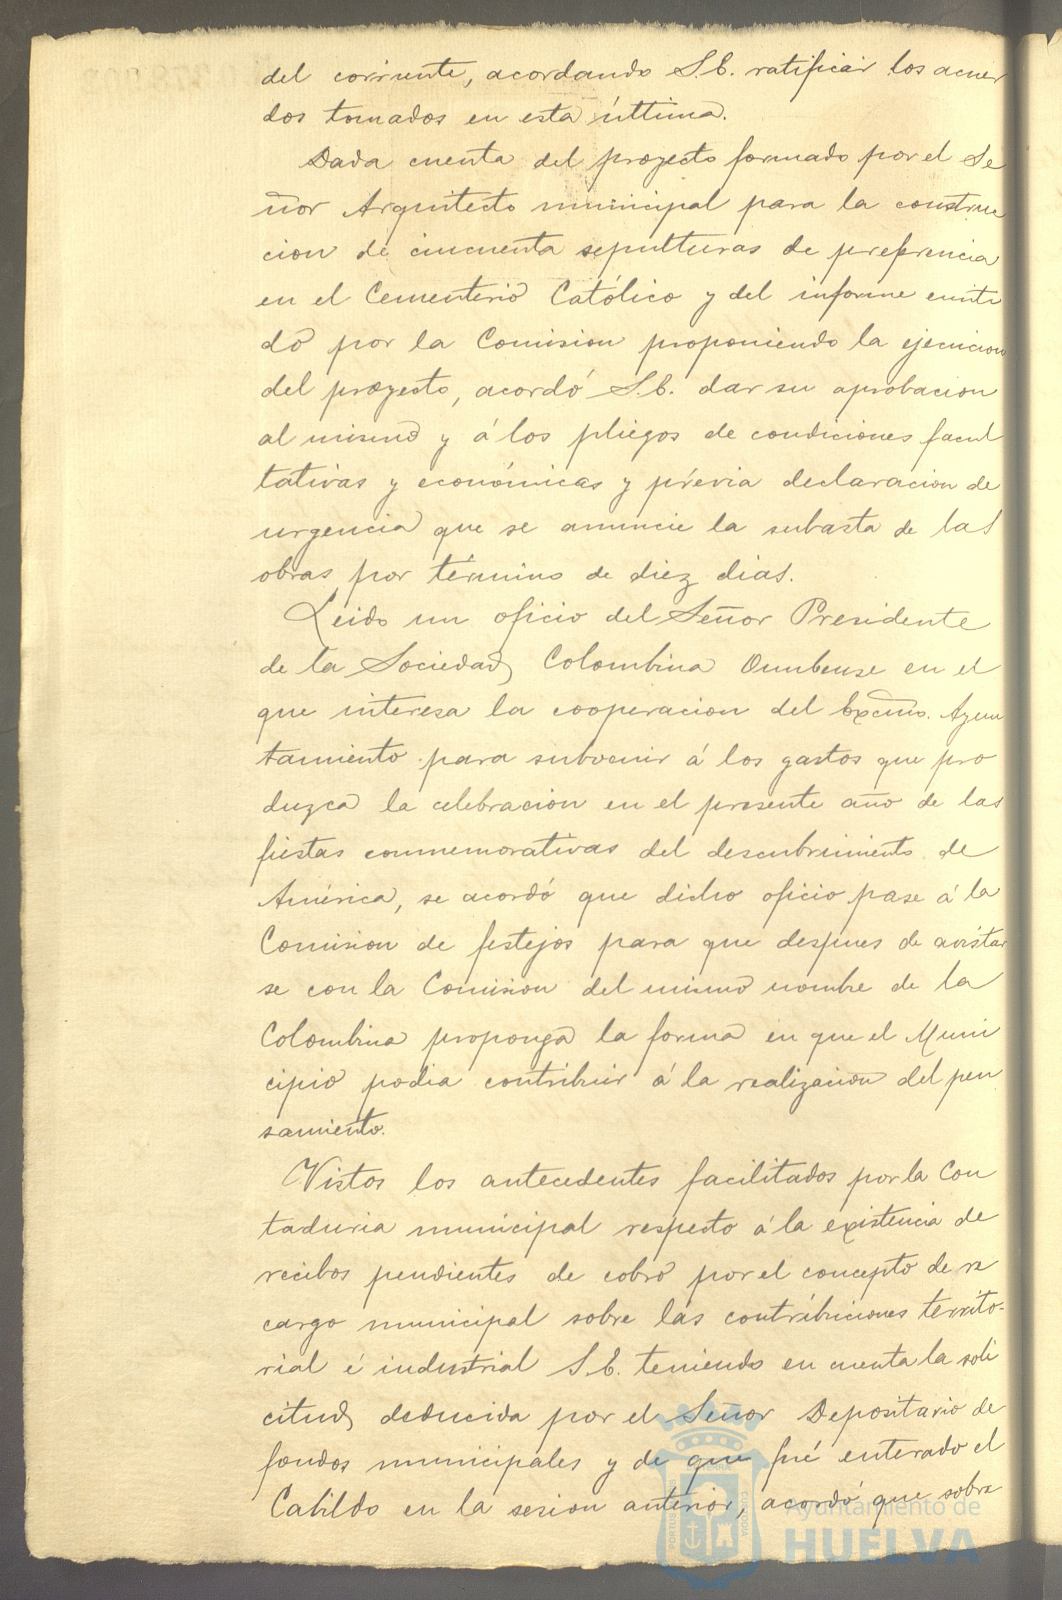 del corriente, acordando S.E. ratificar los acuer
dos tomados en esta última.
Dada cuenta del proyecto formado por el Se
ñor Arquitecto municipal para la construc
cion de cincuenta sepulturas de preferencia
en el Cementerio Católico y del informe emiti
do por la Comision proponiendo la ejecucion
del proyecto, acordó S.E. dar su aprobacion
al mismo y á los pliegos de condiciones facul
tativas y económicas y prévia declaracion de
urgencia que se anuncie la subasta de las
obras por término de diez dias.
Leido un oficio del Señor Presidente
de la Sociedad Colombina Onubense en el
que interesa la cooperacion del Excmo. Ayun
tamiento para subvenir á los gastos que pro
duzca la celebracion en el presente año de las
fiestas conmemorativas del descubrimiento de
América, se acordó que dicho oficio pase á la
Comision de festejos para que despues de avistar
se con la Comision del mismo nombre de la
Colombina proponga la forma en que el Muni
cipio podia contribuir á la realizacion del pen
samiento.
Vistos los antecedentes facilitados por la Con
taduria municipal respecto á la existencia de
recibos pendientes de cobro por el concepto de re
cargo municipal sobre las contribuciones territo-
rial é industrial S.E. teniendo en cuenta la soli
citud deducida por el Señor Depositario de
fondos municipales y de que fué enterado el
Cabildo en la sesion anterior, acordó que sobre
PORTUS
CUSTODIA
Ayuntamiento de
HUELVA